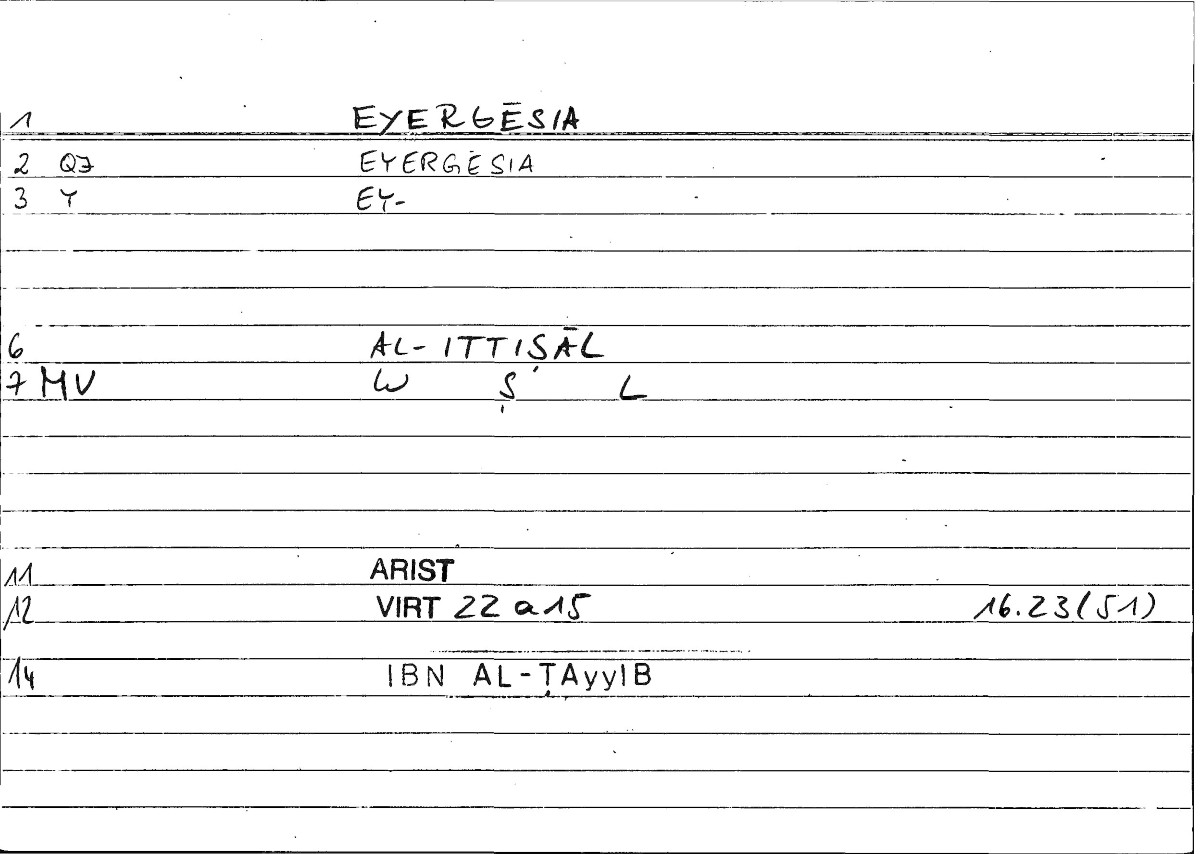 1 EYERGĒSIA
2 QJ EYERGĖSIA
3 Y EY-
6 AL-ITTIṢĀL
7 MV W Ṣ L
11 ARIST
12 VIRT 22 a 15 16.23(51)
14 IBN AL-ṬAyyIB